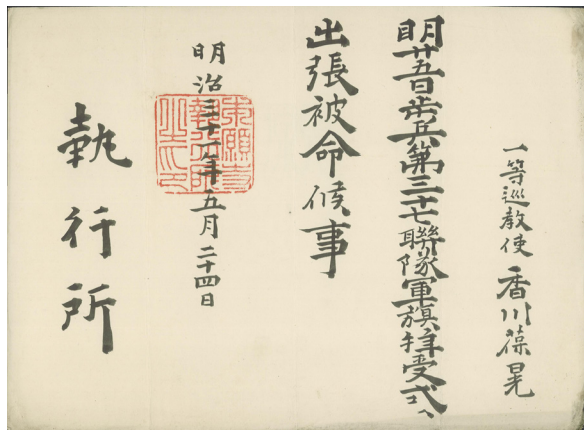 一等巡教使 香川葆晃
明廿五日歩兵第三十七聯隊軍旗拝受式ヘ
出張被命候事
明治三十一年五月二十四日
執行所